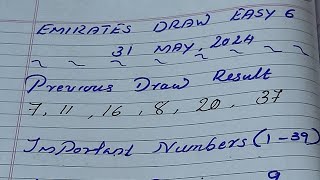 EMIRATES DRAW EASY 6
31 MAY, 2024
~ ~ ~ ~ ~ ~ ~ ~ ~
Previous Draw Result
7, 11, 16, 8, 20, 37
Important Numbers (1-39)
9